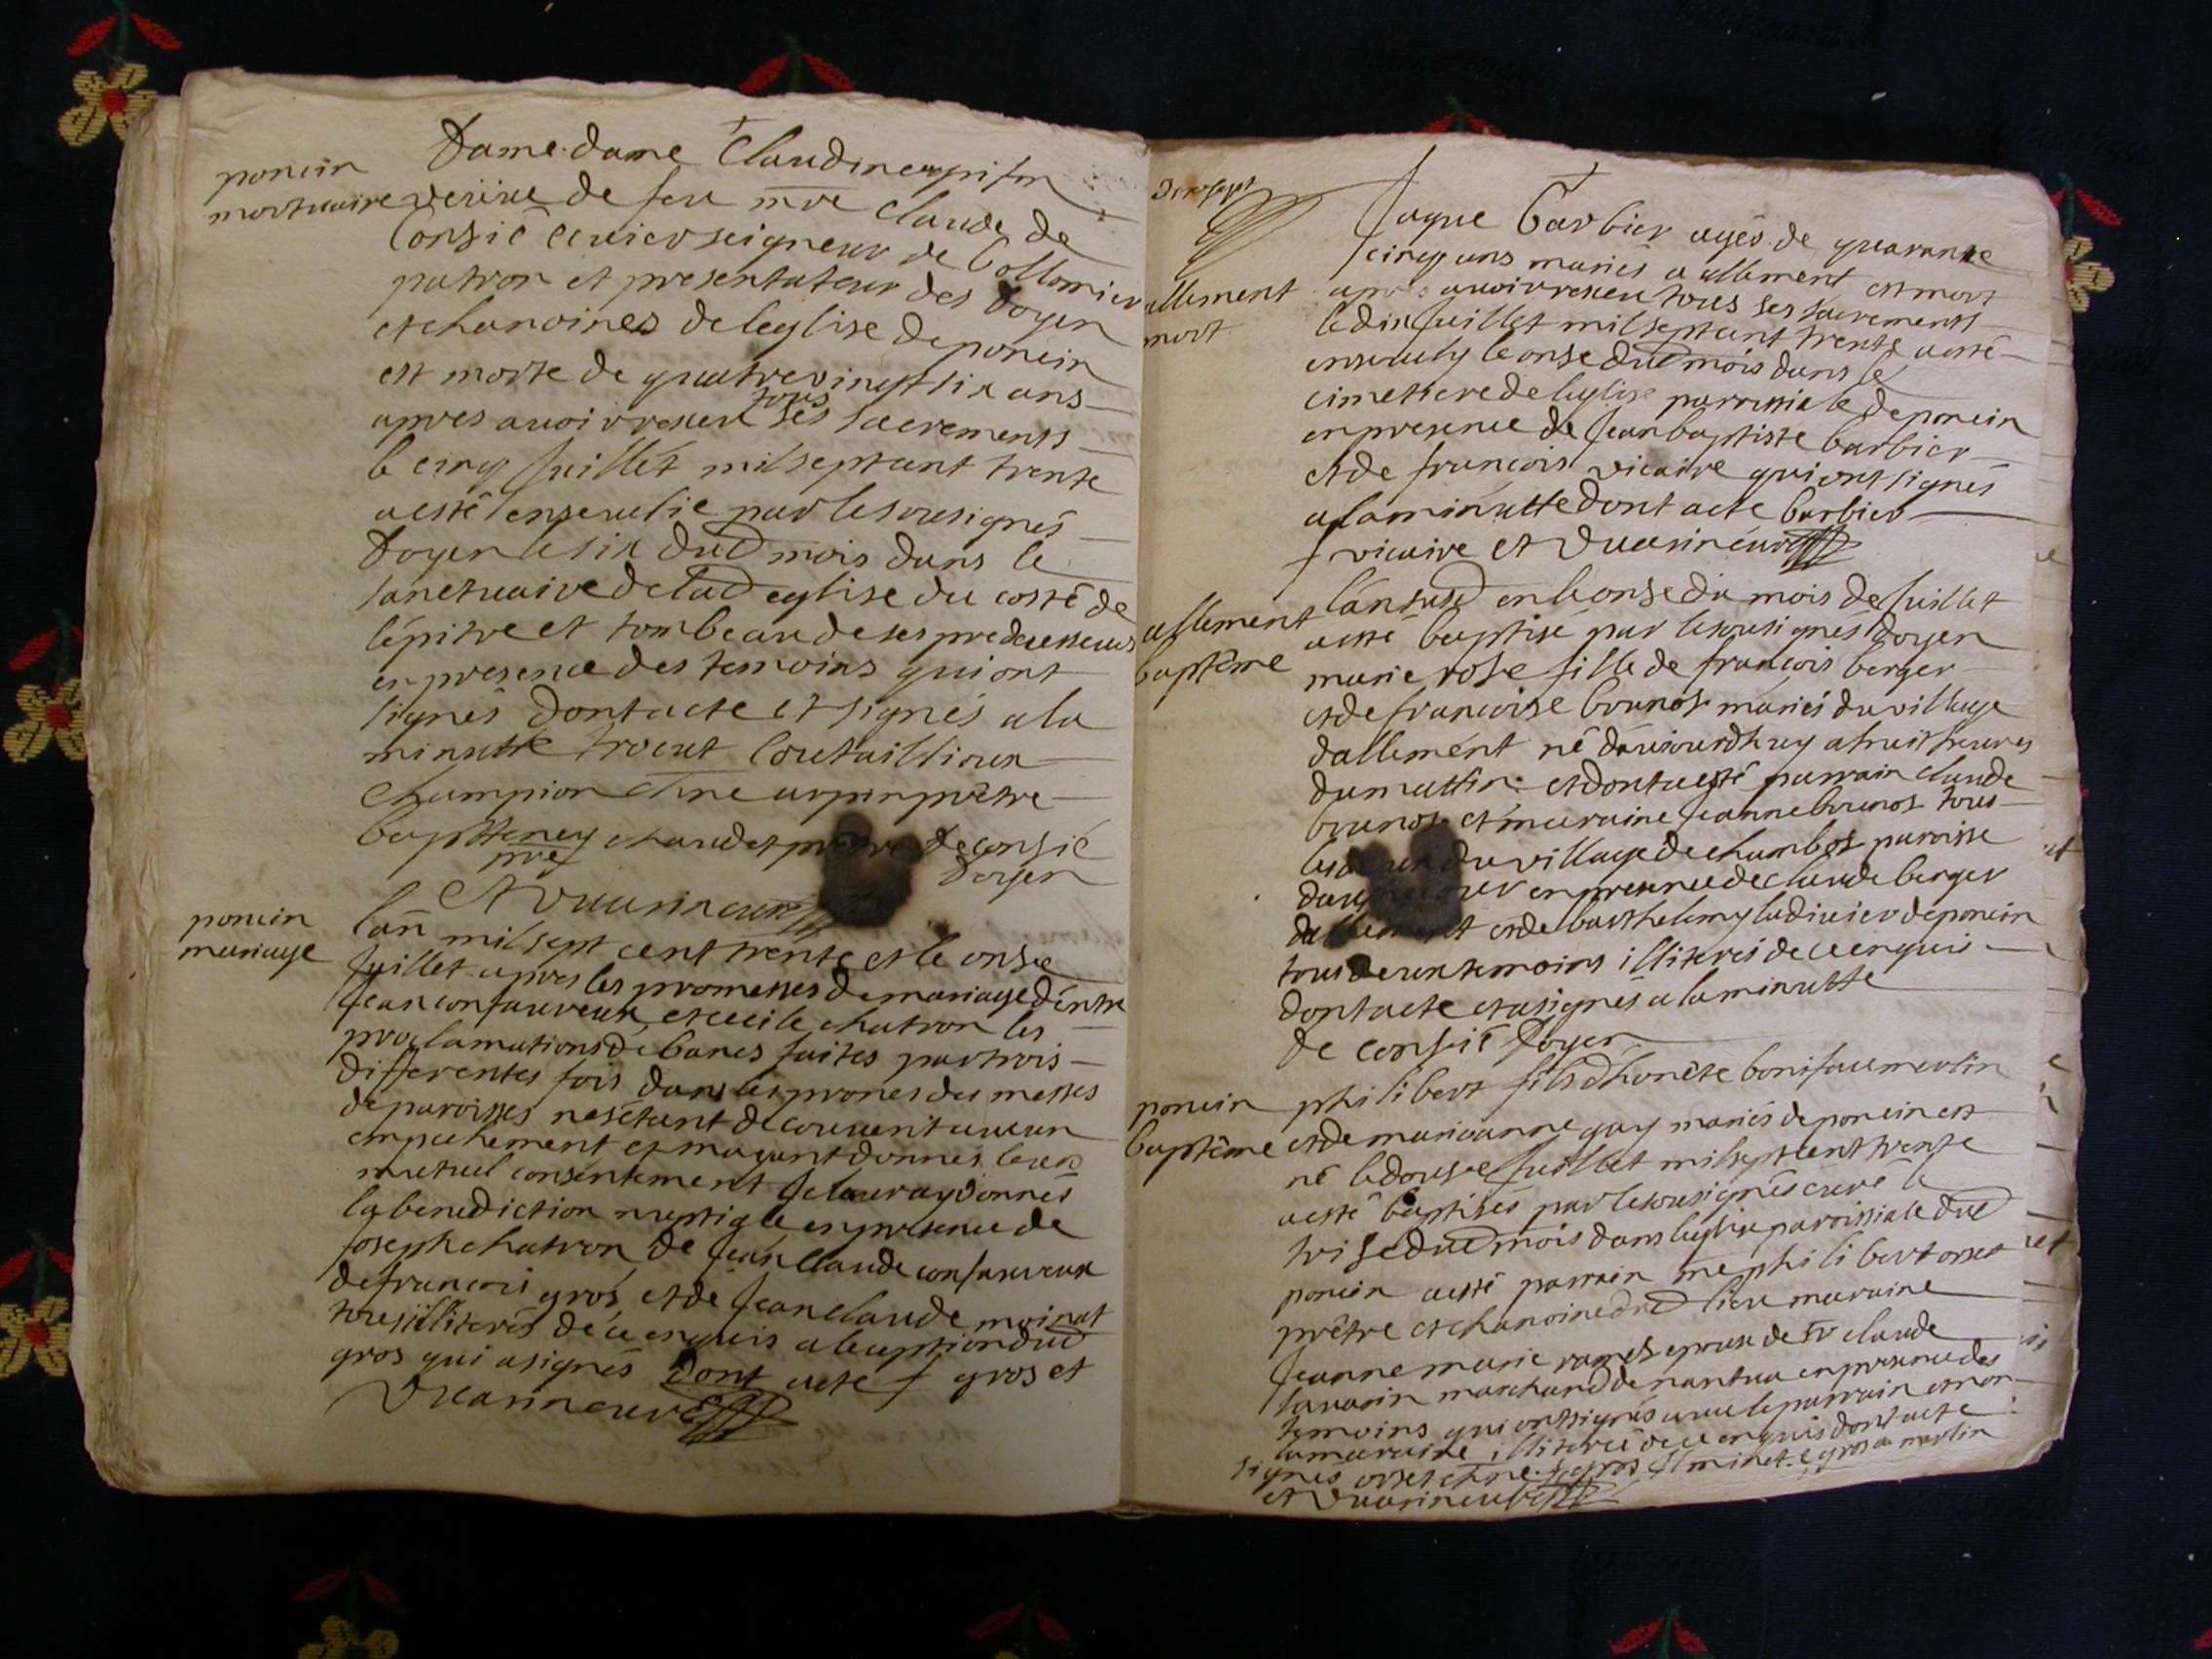 poncin
mortuaire
Dame dame Claudine
veüive de feu mre claude de
Consié ecuier seigneur de Collomier
patron et presentateur des doyen
et chanoines de leglise de poncin
est morte de quatrevingt six ans
apres auoir receu tous ses sacrements
le cinq juillet mil sept cent trente
a esté enseuelie par le sousignés
doyen le six dud mois dans le
sanctuaire de lad eglise du costé de
lépitre et tombeau de ses predecesseurs
en presence des temoins qui ont
signés dont acte et signés a la
minutte trocut Coutaillioux
Champion chne prêtre
pre chaudet de consié
doyen
et
poncin
mariage
lan mil sept cent trente et le onse
juillet apres les promesses de mariage dentre
jean confavreux et cecile chatron les
proclamations de bancs faites par trois
differentes fois dans les prones des messes
de paroisses ne sétant decouuerit aucun
empechement et mayant donnés leur
mutuel consentement je leur ay donnés
la benediction nuptiale en presence de
joseph chatron de jean claude confavreux
de francois gros et de jean claude moinat
tous illiterés de ce enquis a lexeption dud
gros qui a signés dont acte f gros et
allement
mort
jaque barbier agés de quarante
cinq ans mariés a allement est mort
apres auoir receu tous ses sacrements
le dix juillet mil sept cent trente a esté
enseuely le onse dud mois dans le
cimetiere de leglise parroissiale de poncin
en presence de jean baptiste barbier
et de francois vicaire qui ont signés
a la minutte dont acte barbier
f vicaire et
allement
baptême
lan susd en le onse du mois de juillet
a esté baptisé par le sousignés doyen
marie rose fille de francois berger
et de francoise brunot mariés du village
dallement né daujourdhuy a huit heures
du mattin et dont a esté parrain claude
brunot et marraine jeanne brunot tous
du village de chambot paroisse
en presence de claude berger
et de barthelemy ludiuier de poncin
tous deux temoins illiterés de ce enquis
dont acte et a signés a la minutte
de consié doyen
poncin
baptême
philibert fils dhonête boniface merlin
et de marieanne guy mariés de poncin est
né le douse juillet mil sept cent trente
a esté baptisés par le sousignés curé le
trise dud mois dans leglise paroissiale dud
poncin a esté parrain mre philibert orset
prêtre et chanoine dud lieu maraine
jeanne marie ramel epouse de sr claude
sauarin marchand de nantua en presence des
temoins qui ont signés auec le parrain et non
la maraine illiterée de ce enquis dont acte
signés orset chne gros minet gros merlin
et